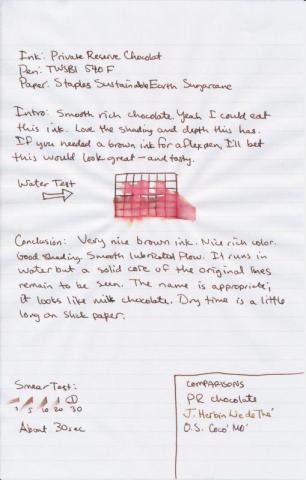 Ink: Private Reserve Chocolat
Pen: TWSBI 540 F
Paper: Staples Sustainable Earth Sugarcane
Intro: Smooth rich chocolate. Yeah I could eat
this ink. Love the shading and depth this has.
If you needed a brown ink for a flex pen, I'll bet
this would look great - and tasty.
Water Test
Conclusion: Very nice brown ink. Nice rich color.
Good shading. Smooth lubricated flow. It runs in
water but a solid core of the original lines
remain to be seen. The name is appropriate;
it looks like milk chocolate. Dry time is a little
long on slick paper.
Smear Test:
1 5 10 20 30
About 30sec
COMPARISONS
PR chocolate
J. Herbin Lie de Thé
O.S. Coco' Mo'